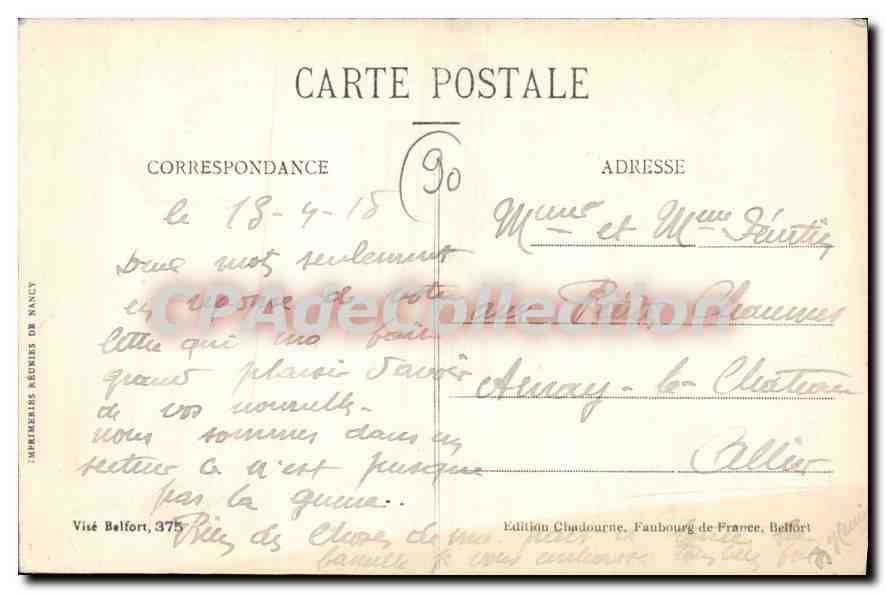 CARTE POSTALE
CORRESPONDANCE
ADRESSE
90
le 13-4-18
Deux mots seulement
en réponse de votre
lettre qui ma fait
grand plaisir d'avoir
de vos nouvelle-
nous sommes dans un
secteur ce n'est presque
pas la guerre.
Bien des choses de ma part
famille je vous embrasse
Mme
et Mme
au Petit Chaumes
Arnay-le-Chateau
Allier
IMPRIMERIES RÉUNIES DE NANCY
Visé Belfort, 375
Edition Chadourne, Faubourg de France, Belfort
CPAdeCollection